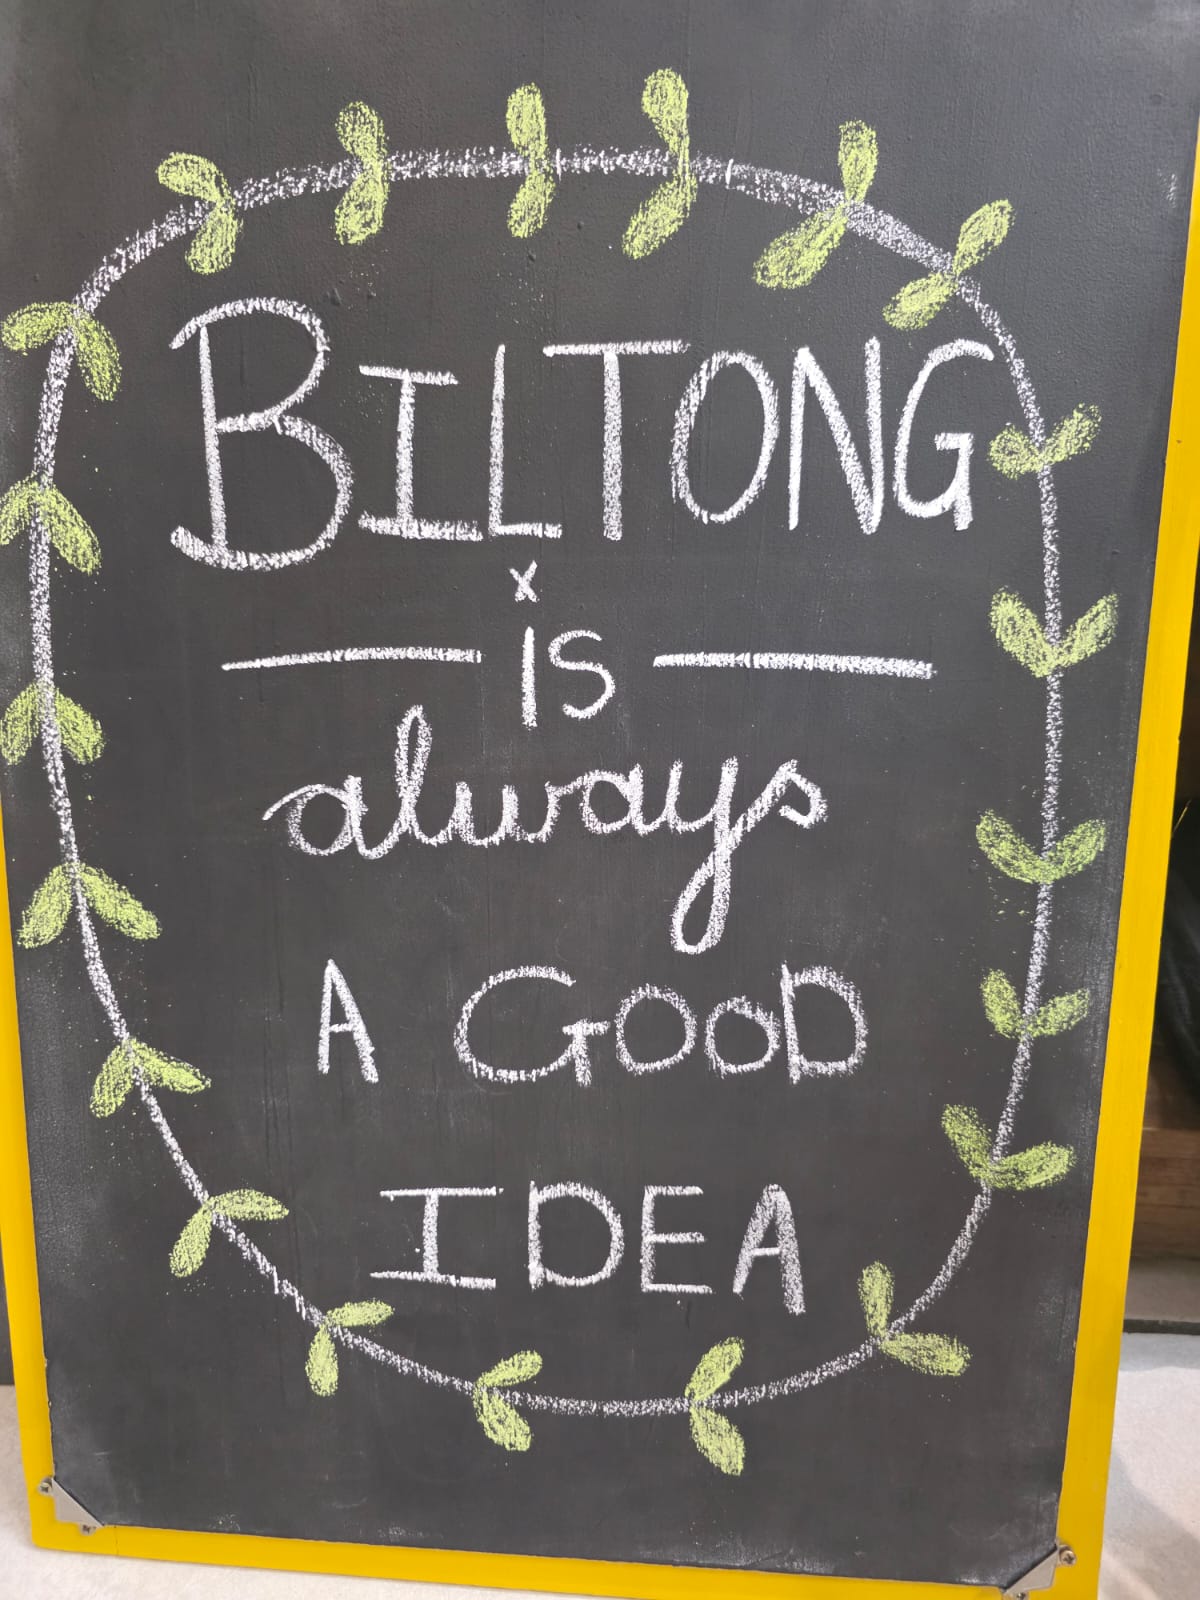 BILTONG
x
is
always
A GOOD
IDEA